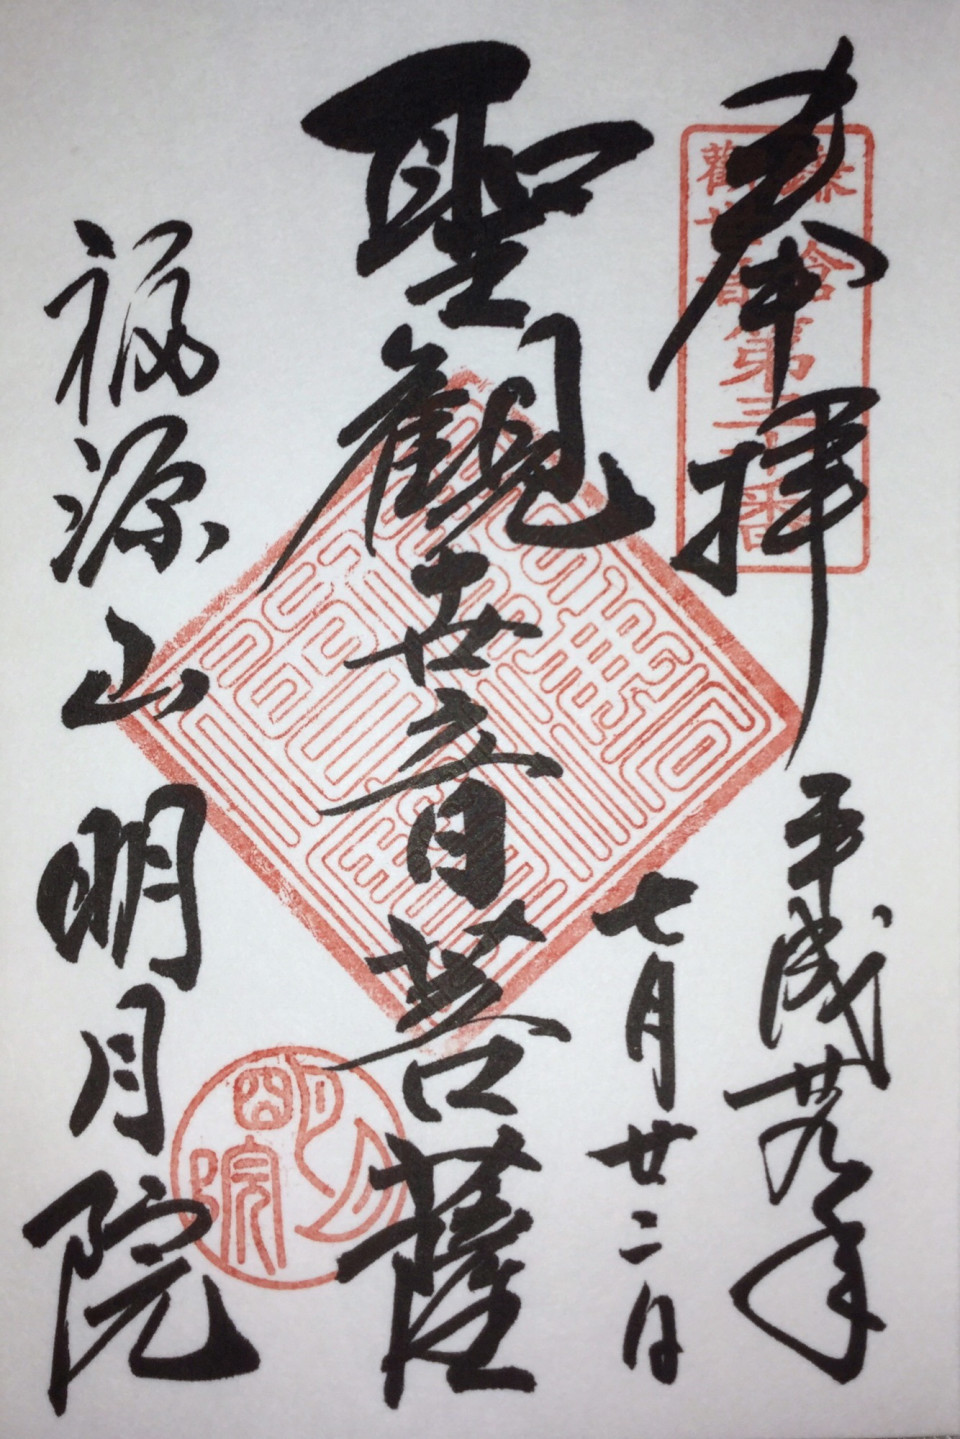 奉拝
鎌倉
觀世音第三十番
平成廿九年
七月廿二日
聖觀世音菩薩
福源山明月院
明月院